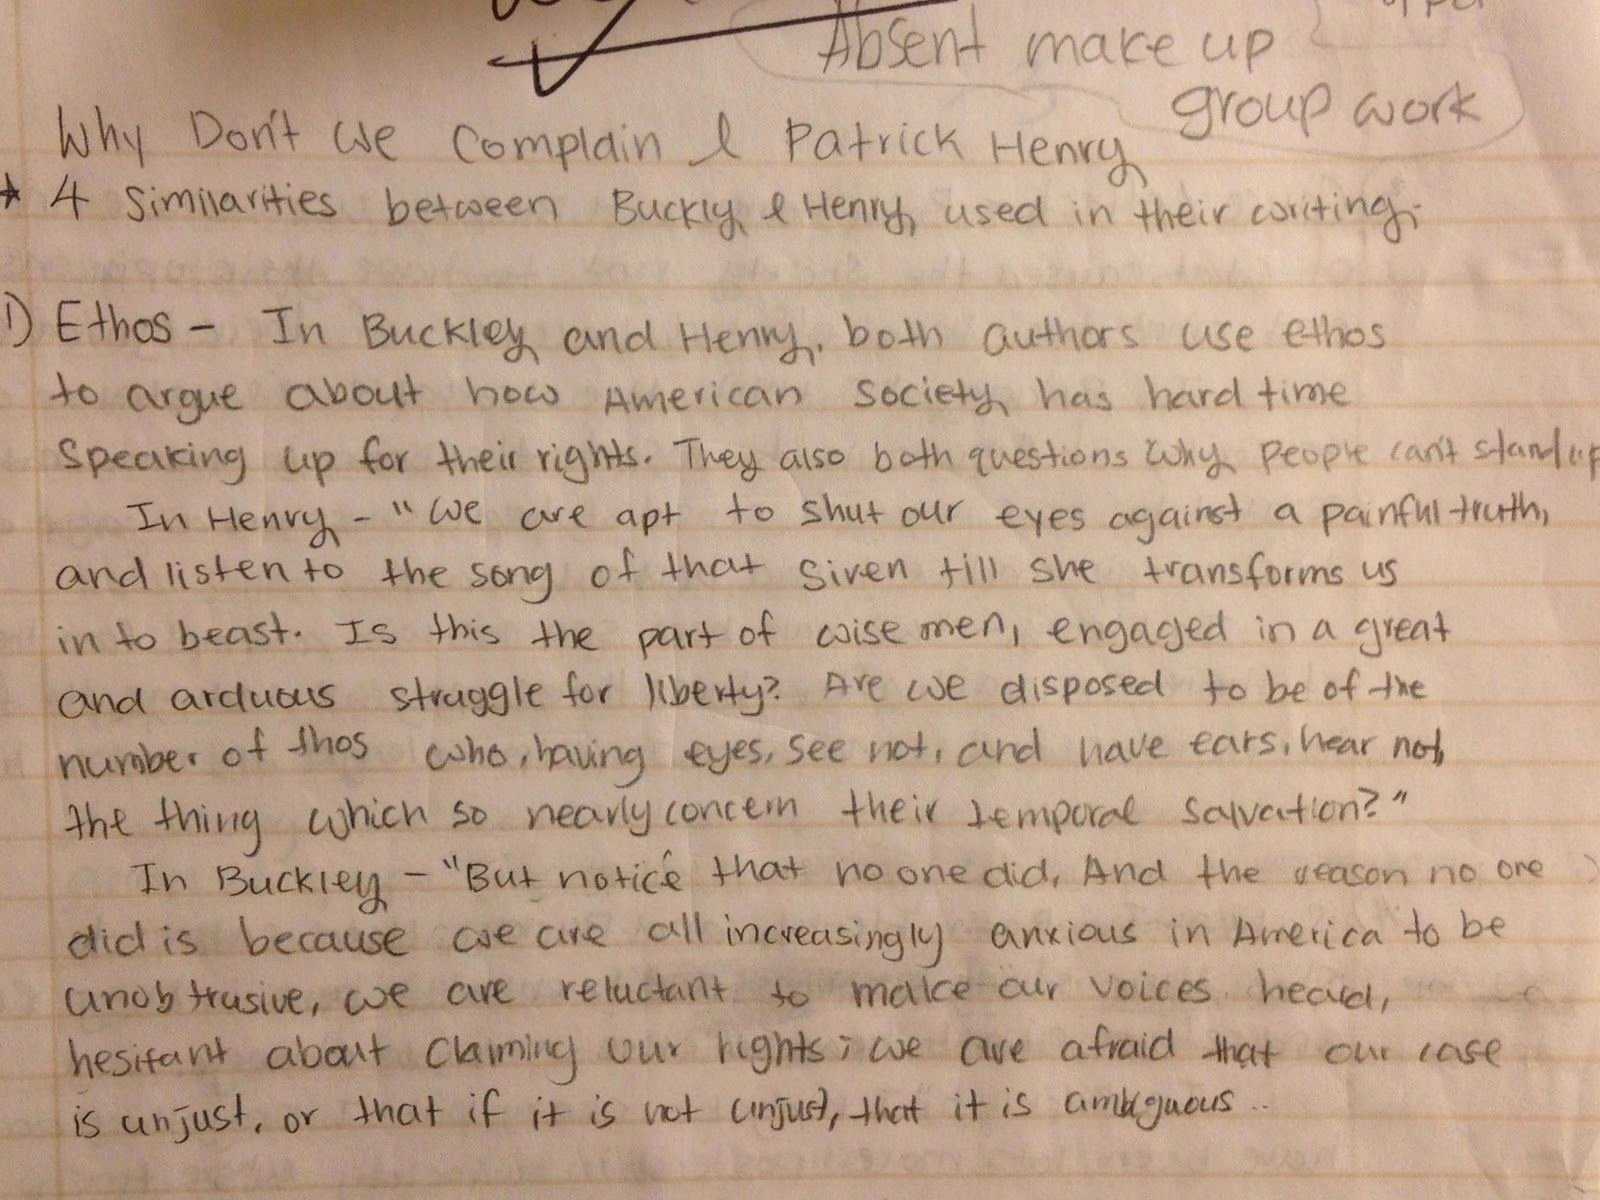 Absent make up
group work
Why Don't We Complain & Patrick Henry
* 4 Similarities between Buckly & Henry used in their writing;
1) Ethos - In Buckley and Henry, both authors use ethos
to argue about how American Society has hard time
Speaking up for their rights. They also both questions why people can't stand up
In Henry - "We are apt to shut our eyes against a painful truth,
and listen to the song of that siren till she transforms us
in to beast. Is this the part of wise men, engaged in a great
and arduous struggle for liberty? Are we disposed to be of the
number of thos who, having eyes, see not, and have ears, hear not,
the thing which so nearly concern their temporal salvation?"
In Buckley - "But notice that no one did. And the reason no one
did is because we are all increasingly anxious in America to be
unobtrusive, we are reluctant to make our voices heard,
hesitant about claiming our rights; we are afraid that our case
is unjust, or that if it is not unjust, that it is ambiguous..